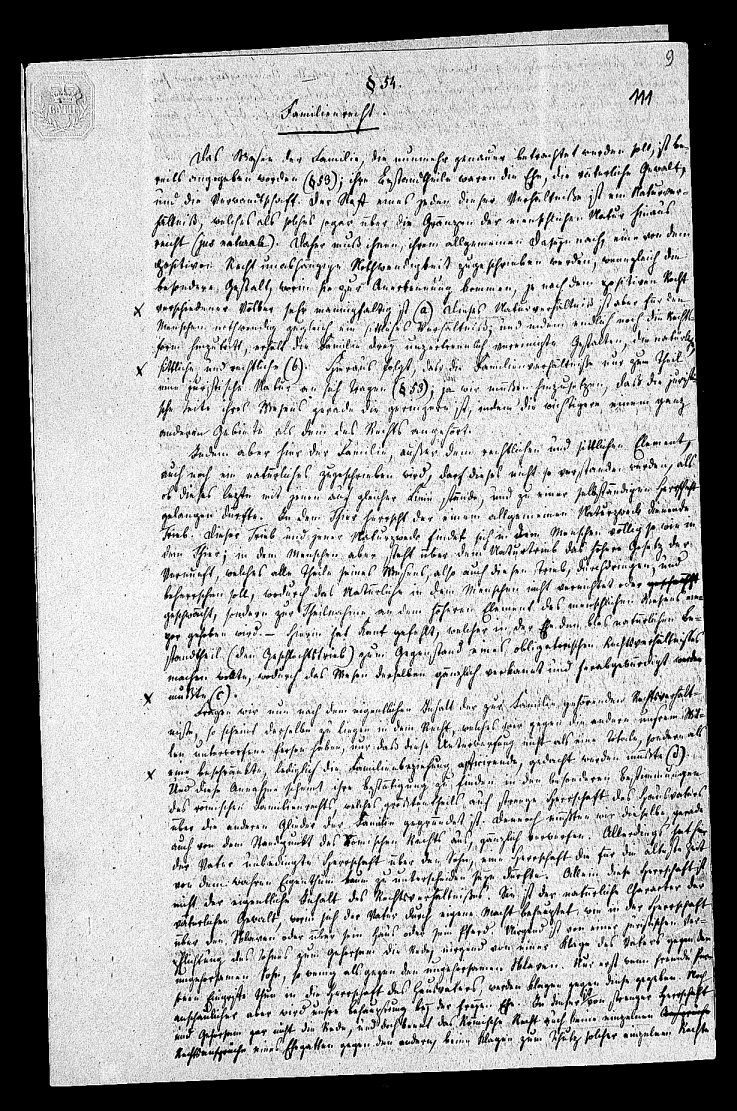 9
§ 54.
111
Familienrecht.
Das Wesen der Familie, die nunmehr genauer betrachtet werden soll, ist be-
reits angegeben worden (§ 53); ihre Bestandtheile waren die Ehe, die väterliche Gewalt,
und die Verwandtschaft. Der Stoff eines jeden dieser Verhältnisse ist ein Naturver-
hältniß, welches als solches sogar über die Gränzen der menschlichen Natur hinaus
reicht (jus naturale). Daher muß ihnen, ihrem allgemeinen Daseyn nach, eine von dem
positiven Recht unabhängige Nothwendigkeit zugeschrieben werden, wenngleich die
besondere Gestalt, worin sie zur Anerkennung kommen, je nach dem positiven Recht
x verschiedener Völker sehr mannigfaltig ist (a). Dieses Naturverhältniß ist aber für den
Menschen nothwendig zugleich ein sittliches Verhältniß; und indem endlich noch die Rechts-
form hinzutritt, erhält die Familie drey unzertrennlich vereinigte Gestalten, die natürliche,
x sittliche und rechtliche (b). Hieraus folgt, daß die Familienverhältnisse nur zum Theil
eine juristische Natur an sich tragen (§ 53); ja wir müssen hinzusetzen, daß die juristi-
sche Seite ihres Wesens gerade die geringere ist, indem die wichtigere einem ganz
anderen Gebiete als dem des Rechts angehört.
Indem aber hier der Familie, außer dem rechtlichen und sittlichen Element,
auch noch ein natürliches zugeschrieben wird, darf dieses nicht so verstanden werden, als
ob dieses letzte mit jenen auf gleicher Linie stünde, und zu einer selbständigen Herrschaft
gelangen dürfte. In dem Thier herrscht der einem allgemeinen Naturzweck dienende
Trieb. Dieser Trieb und jener Naturzweck findet sich in dem Menschen völlig so wie in
dem Thier; in dem Menschen aber steht über dem Naturtrieb das höhere Gesetz der
Vernunft, welches alle Theile seines Wesens, also auch diesen Trieb, durchdringen und
beherrschen soll, wodurch das Natürliche in dem Menschen nicht vernichtet oder
geschwächt, sondern zur Theilnahme an dem höheren Element des menschlichen Wesens em-
por gehoben wird. — Hierin hat Kant gefehlt, welcher in der Ehe den blos natürlichen Be-
standtheil (den Geschlechtstrieb) zum Gegenstand eines obligatorischen Rechtsverhältnisses
machen wollte, wodurch das Wesen derselben gänzlich verkannt und herabgewürdigt werden
x mußte (c).
Fragen wir nun nach dem eigentlichen Inhalt der zur Familie gehörenden Rechtsverhält-
nisse, so scheint derselbe zu liegen in dem Recht, welches wir gegen den andern unsrem Wil-
len unterworfene Person haben, nur daß diese Unterwerfung nicht als eine totale, sondern als
x eine beschränkte, lediglich die Familienbeziehung afficirende, gedacht werden müßte (d)
Und diese Annahme scheint ihre Bestätigung zu finden in den besonderen Bestimmungen
des römischen Familienrechts, welches größtentheils auf strenge Herrschaft des Hausvaters
über die anderen Glieder der Familie gegründet ist. Dennoch müssen wir dieselbe, gerade
auch von dem Standpunkt des Römischen Rechts aus, gänzlich verwerfen. Allerdings hat hier
der Vater unbedingte Herrschaft über den Sohn, eine Herrschaft die für die älteste Zeit
von dem wahren Eigenthum kaum zu unterscheiden seyn dürfte. Allein diese Herrschaft ist
nicht der eigentliche Inhalt des Rechtsverhältnisses. Sie ist der natürliche Character der
väterlichen Gewalt, worin sich der Vater durch eigene Macht behauptet, wie in der Herrschaft
über den Sklaven oder über sein Haus oder sein Pferd. Nirgend ist von einer juristischen Ver-
pflichtung des Sohnes zum Gehorsam die Rede, nirgend von einer Klage des Vaters gegen den
ungehorsamen Sohn, so wenig als gegen den ungehorsamen Sklaven. Nur erst wenn fremde Per-
sonen Eingriffe thun in die Herrschaft des Hausvaters, werden Klagen gegen diese gegeben. Noch
anschaulicher aber wird unsre Behauptung bey der freyen Ehe. In dieser ist von strenger Herrschaft
und Gehorsam gar nicht die Rede, und doch kennt das Römische Recht auch keine einzelnen
Rechtsansprüche eines Ehegatten gegen den andern, keine Klagen zum Schutz solcher einzelnen Rechte